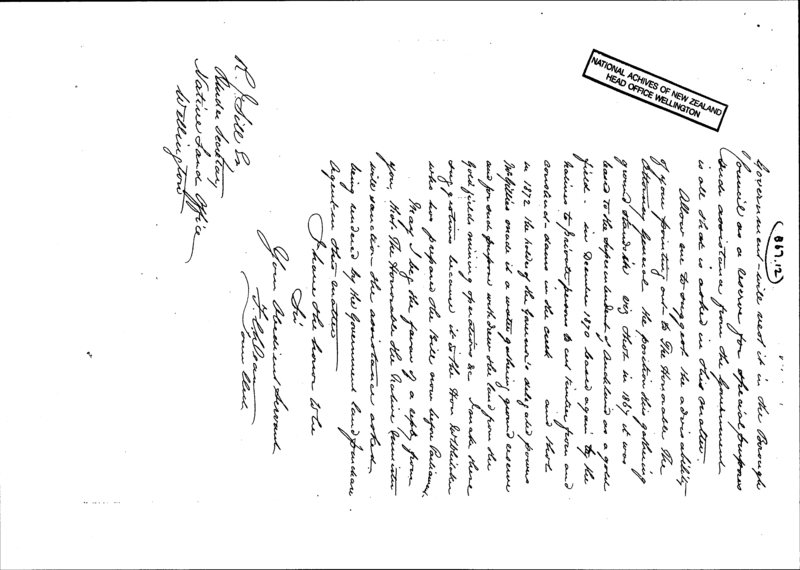 (B67.12)
NATIONAL ACHIVES OF NEW ZEALAND
HEAD OFFICE WELLINGTON
Government will vest it in the Borough
Council as a reserve for special purposes
Such assistance from the Government
is all that is asked in this matter.
Allow me to suggest the advisability
of your pointing out to The Honorable The
Attorney General the position this gathering
ground stands in viz that in 1867 it was
leased to the Superintendent of Auckland as a gold
field - in December 1870 leased again to the
natives to private persons to cut timber from and
construct dams in the creek and that
in 1872 the holder of the Governor's delegated powers
made it a water gathering ground reserve
and for such purpose withdrew the land from the
Gold fields mining operations &c I make these
suggestions because it is the Hon Whitaker
who has prepared the Bill now before Parliament.
May I beg the favor of a reply from
you that The Honorable the Native Minister
will sanction the assistance asked,
being rendered by the Government land purchase
Agent in this matter
I have the honor to be
Sir
Your obedient Servant
Town Clerk
R. J. Gill Esq
Under Secretary
Native Land Office
Wellington